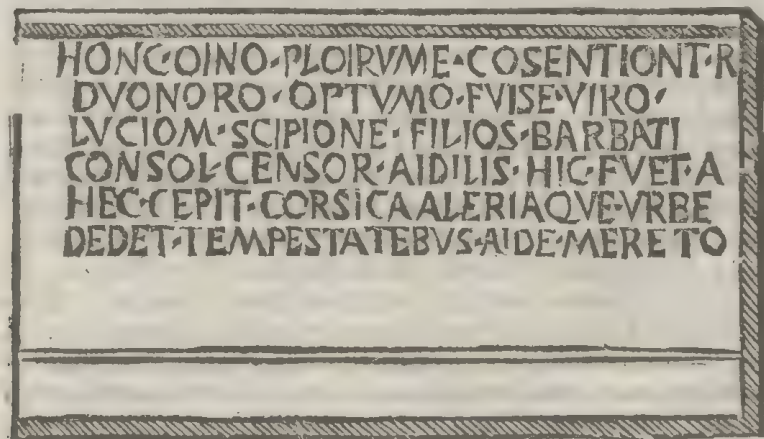 HONC·OINO·PLOIRVME·COSENTIONT·R
DVONORO·OPTVMO·FVISE·VIRO·
LVCIOM·SCIPIONE·FILIOS·BARBATI
CONSOL·CENSOR·AIDILIS·HIC·FVET·A
HEC·CEPIT·CORSICAALERIAQVE·VRBE
DEDET·TEMPESTATEBVS·AIDE·MERETO